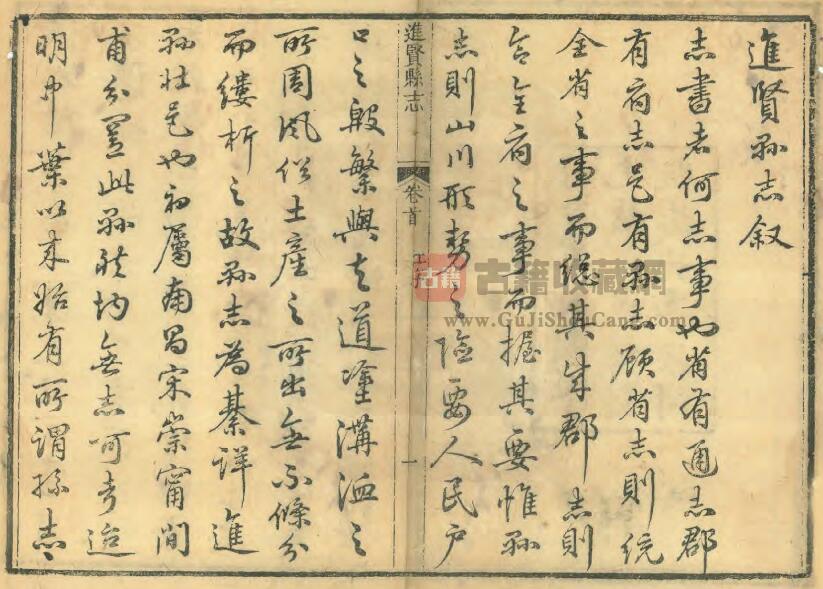 進賢縣志叙
志書者何志事也省有通志郡
有府志邑有縣志顧省志則統
全省之事而總其成郡志則
合全府之事而握其要惟縣
志則山川形勢之險要人民戶
進賢縣志 卷首 序 一
口之殷繁與夫道塗溝洫之
所周風俗土產之所出無不條分
而縷析之故縣志為綦詳進
縣壯邑也初屬南昌宋崇甯間
甫分置此縣然均無志可考迨
明中葉以來始有所謂縣志
古籍
古籍收藏網
www.GuJiShouCang.com